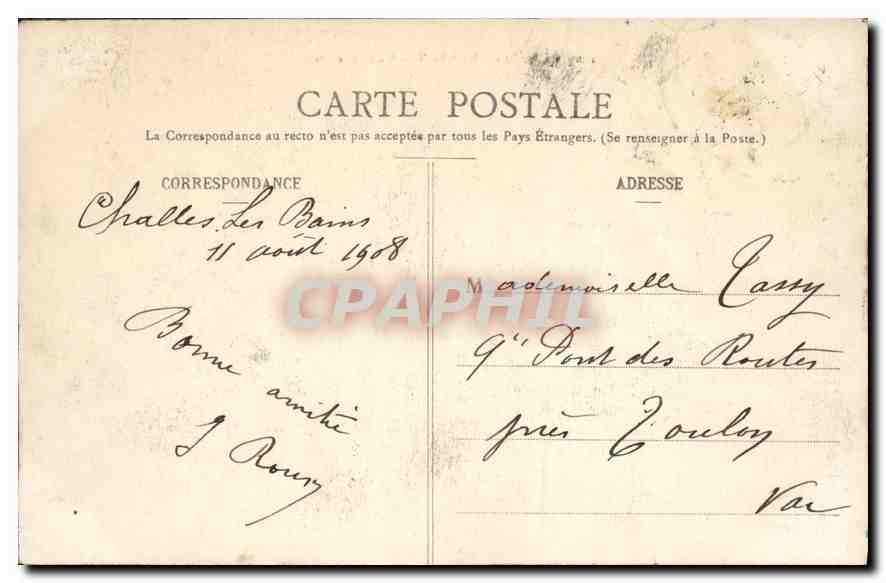 CARTE POSTALE
La Correspondance au recto n'est pas acceptée par tous les Pays Étrangers. (Se renseigner à la Poste.)
CORRESPONDANCE
Challes Les Bains
11 août 1908
Bonne
amitié
J
ADRESSE
Mademoiselle Tassy
Qer Pont des Routes
près Toulon
Var
CPAPHIL